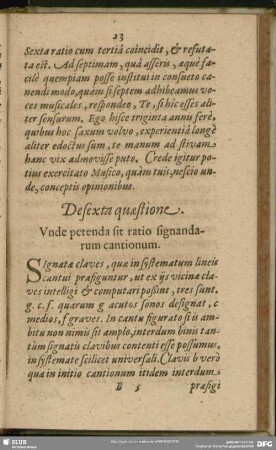 23
Sexta ratio cum tertiâ coincidit, & refuta-
ta est. Ad septimam, quâ asseris, æquè fa-
cilè quempiam posse institui in consueto ca-
nendi modo, quàm si septem adhibeamus vo-
ces musicales, respondeo, Te, si hîc esses ali-
ter sensurum. Ego hisce triginta annis ferè,
quibus hoc saxum volvo, experientiâ longè
aliter edoctus sum, te manum ad stivam
hanc vix admovisse puto. Crede igitur po-
tius exercitato Musico, quàm tuis, nescio un-
de, conceptis opinionibus.
De sexta quæstione.
Vnde petenda sit ratio signanda-
rum cantionum.
SIgnatæ claves, quæ in systematum lineis
cantui præfiguntur, ut ex ijs vicinæ cla-
ves intelligi & computari possint, tres sunt,
g. c. f. quarum g acutos sonos designat, c
medios, f graves. In cantu figurato si is am-
bitu non nimis sit amplo, interdum binis tan-
tùm signatis clavibus contenti esse possumus,
in systemate scilicet universali. Clavis b verò
qua in initio cantionum itidem interdum
B 5
præfigi
SLUB
DFG